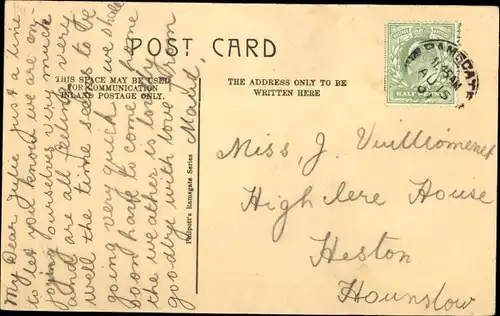 POST CARD
THIS SPACE MAY BE USED
FOR COMMUNICATION
INLAND POSTAGE ONLY.
THE ADDRESS ONLY TO BE
WRITTEN HERE
My Dear Julie just a line
to let you know we are en-
joying ourselves very much
and are all feeling very
well the time seems to be
going very quick we shall
soon have to come home
the weather is lovely
goodbye with love from
Maud.
Philpott's Ramsgate Series
RAMSGATE
HALF
Miss, J. Vuilliomenet
High lere House
Heston
Hounslow.